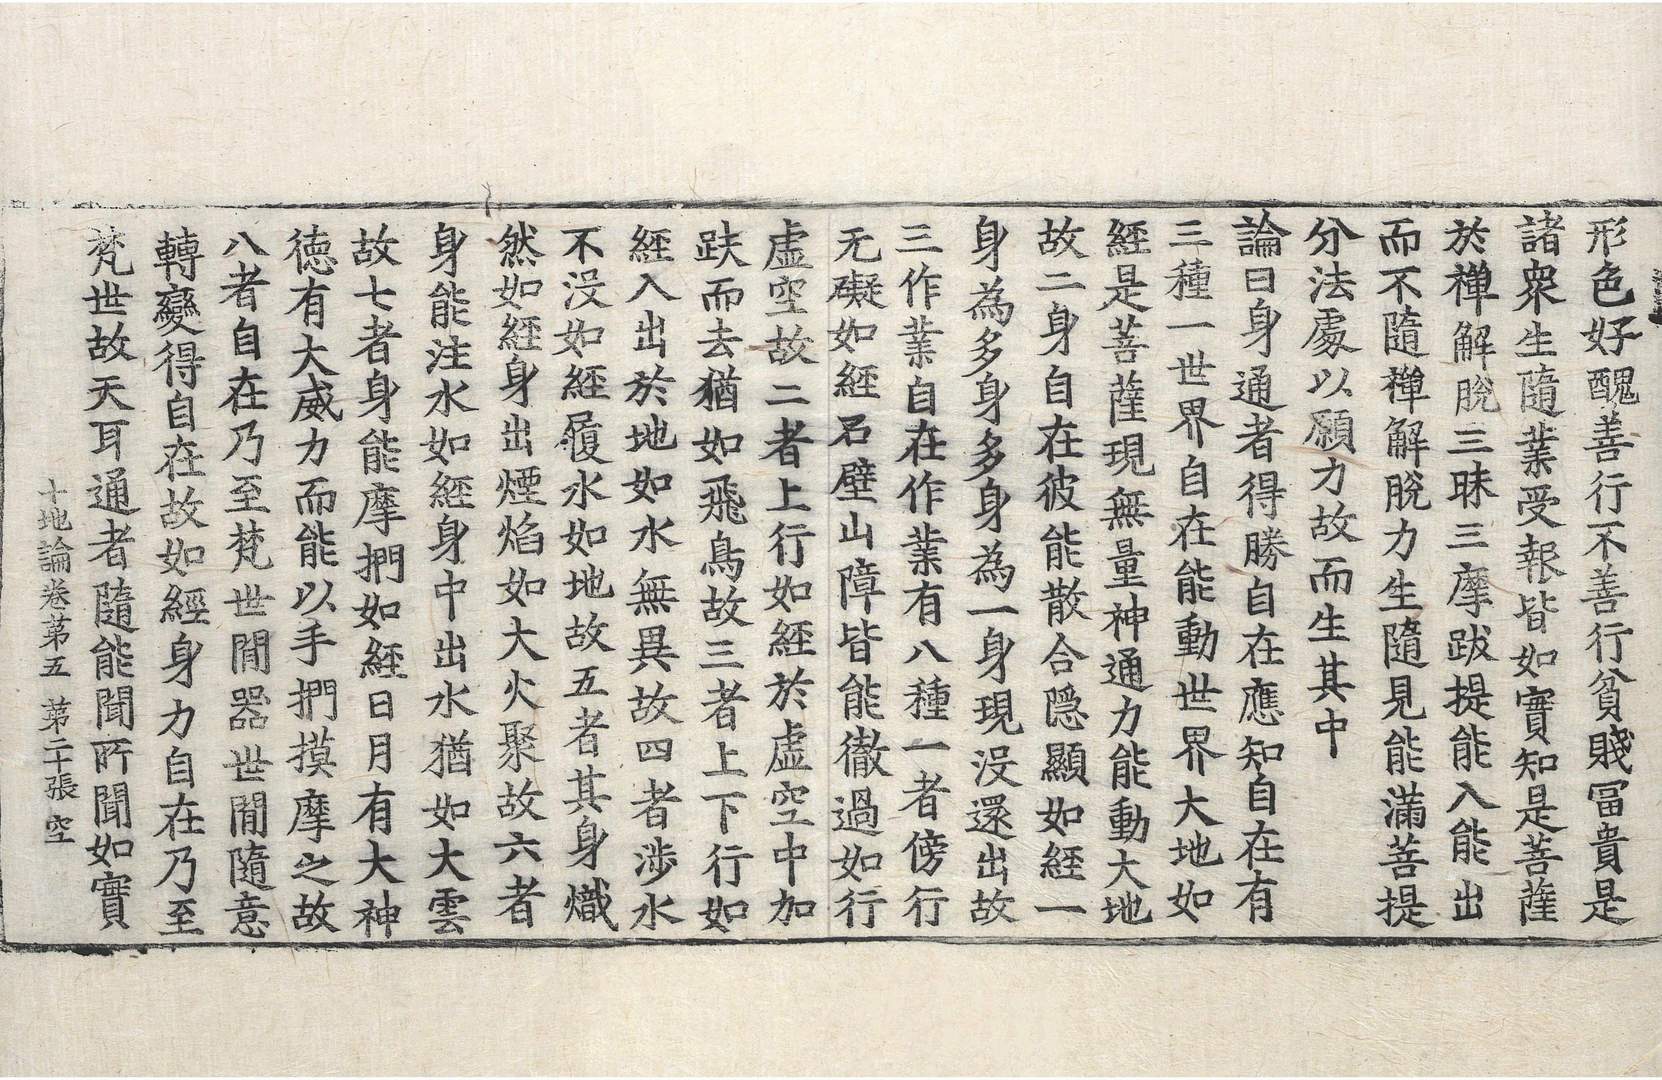 形色好醜善行不善行貧賤冨貴是
諸衆生隨業受報皆如實知是菩薩
於禪解脫三昧三摩跋提能入能出
而不隨禪解脫力生隨見能滿菩提
分法處以願力故而生其中
論曰身通者得勝自在應知自在有
三種一世界自在能動世界大地如
經是菩薩現無量神通力能動大地
故二身自在彼能散合隱顯如經一
身為多身多身為一身現没還出故
三作業自在作業有八種一者傍行
无礙如經石壁山障皆能徹過如行
虛空故二者上行如經於虛空中加
趺而去猶如飛鳥故三者上下行如
經入出於地如水無異故四者涉水
不没如經履水如地故五者其身熾
然如經身出煙焰如大火聚故六者
身能注水如經身中出水猶如大雲
故七者身能摩捫如經日月有大神
德有大威力而能以手捫摸摩之故
八者自在乃至梵世間器世間隨意
轉變得自在故如經身力自在乃至
梵世故天耳通者隨能聞所聞如實
十地論卷第五 第二十張 空